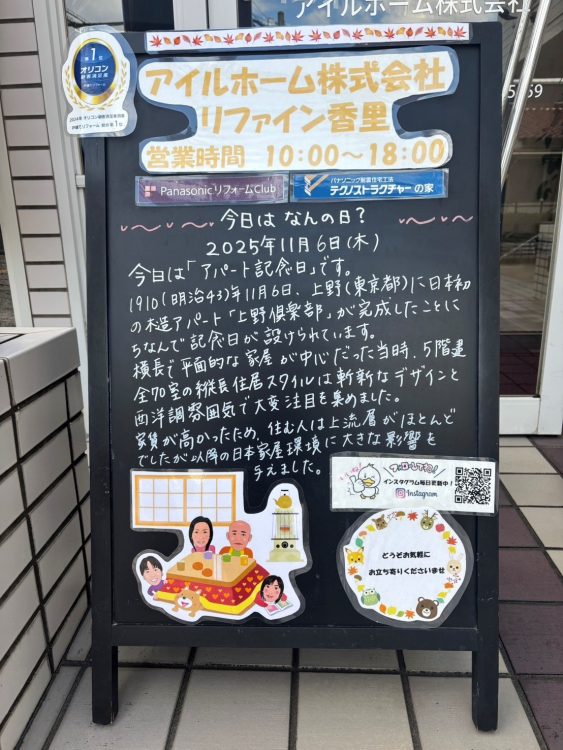 アイルホーム株式会社
第1位
オリコン
顧客満足度
戸建てリフォーム
2024年 オリコン顧客満足度調査
戸建てリフォーム 総合 第1位
アイルホーム株式会社
リファイン香里
営業時間 10:00～18:00
Panasonic リフォームClub
パナソニック耐震住宅工法
テクノストラクチャーの家
今日は なんの日?
2025年11月6日(木)
今日は「アパート記念日」です。
1910(明治43)年11月6日、上野(東京都)に日本初
の木造アパート「上野倶楽部」が完成したことに
ちなんで記念日が設けられています。
横長で平面的な家屋が中心だった当時、5階建
全70室の縦長住居スタイルは斬新なデザインと
西洋調雰囲気で大変注目を集めました。
家賃が高かったため、住む人は上流層がほとんど
でしたが以降の日本家屋環境に大きな影響を
与えました。
フォローしてね!
インスタグラム毎日更新中!
Instagram
どうぞお気軽に
お立ち寄りくださいませ